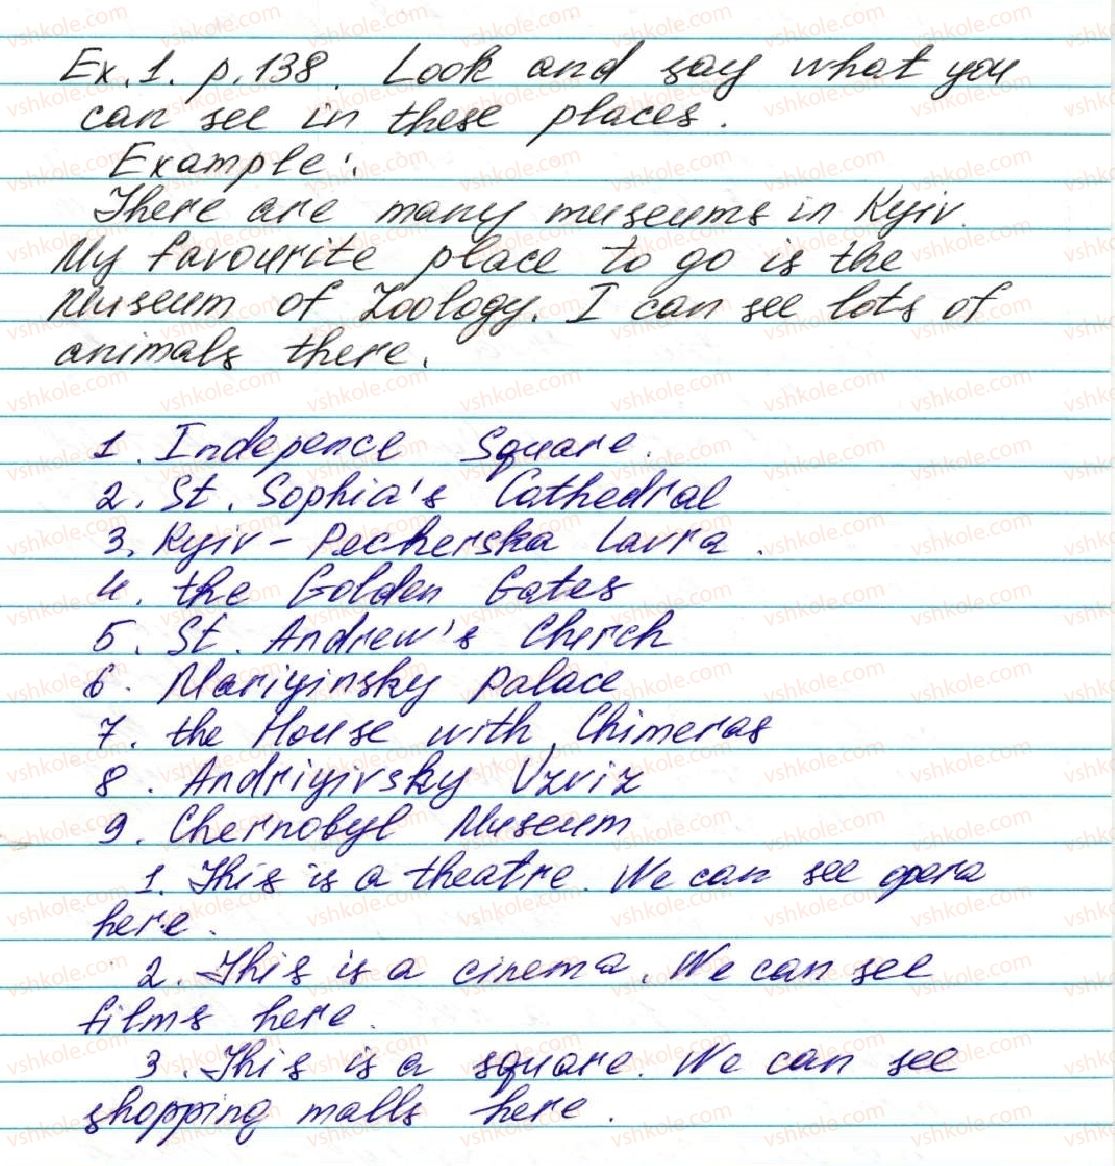 Ex. 1. p. 138. Look and say what you
can see in these places.
Example:
There are many museums in Kyiv.
My favourite place to go is the
Museum of Zoology. I can see lots of
animals there.
1. Indepence Square.
2. St. Sophia's Cathedral
3. Kyiv - Pecherska Lavra.
4. the Golden Gates
5. St. Andrew's Cherch
6. Mariyinsky palace
7. the House with Chimeras
8. Andriyivsky Uzviz
9. Chernobyl Museum
1. This is a theatre. We can see opera
here.
2. This is a cinema. We can see
films here.
3. This is a square. We can see
shopping malls here.
vshkole.com